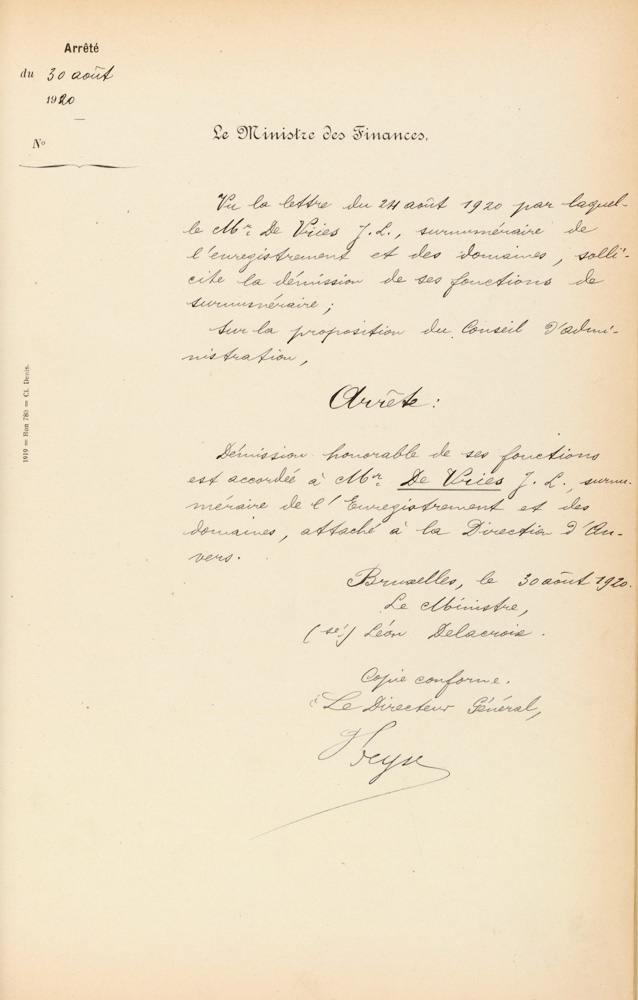 Arrêté
du 30 août
1920
Nº
Le Ministre des Finances,
Vu la lettre du 24 août 1920 par laquel-
le Mr. De Vries J. L., surnuméraire de
l'enregistrement et des domaines, solli-
cite la démission de ses fonctions de
surnuméraire;
Sur la proposition du Conseil d'admi-
nistration,
Arrête:
Démission honorable de ses fonctions
est accordée à Mr. De Vries J. L., surnu-
méraire de l'Enregistrement et des
domaines, attaché à la Direction d'An-
vers.
Bruxelles, le 30 août 1920.
Le Ministre,
(sé) Léon Delacroix.
Copie conforme.
Le Directeur Général,
1919 = Bon 780 = Cl. Denis.